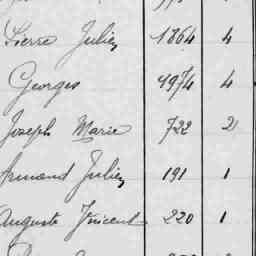 Pierre Julien 1864 4
Georges 1974 4
Joseph Marie 722 2
Armand Julien 191 1
Auguste Vincent 220 1